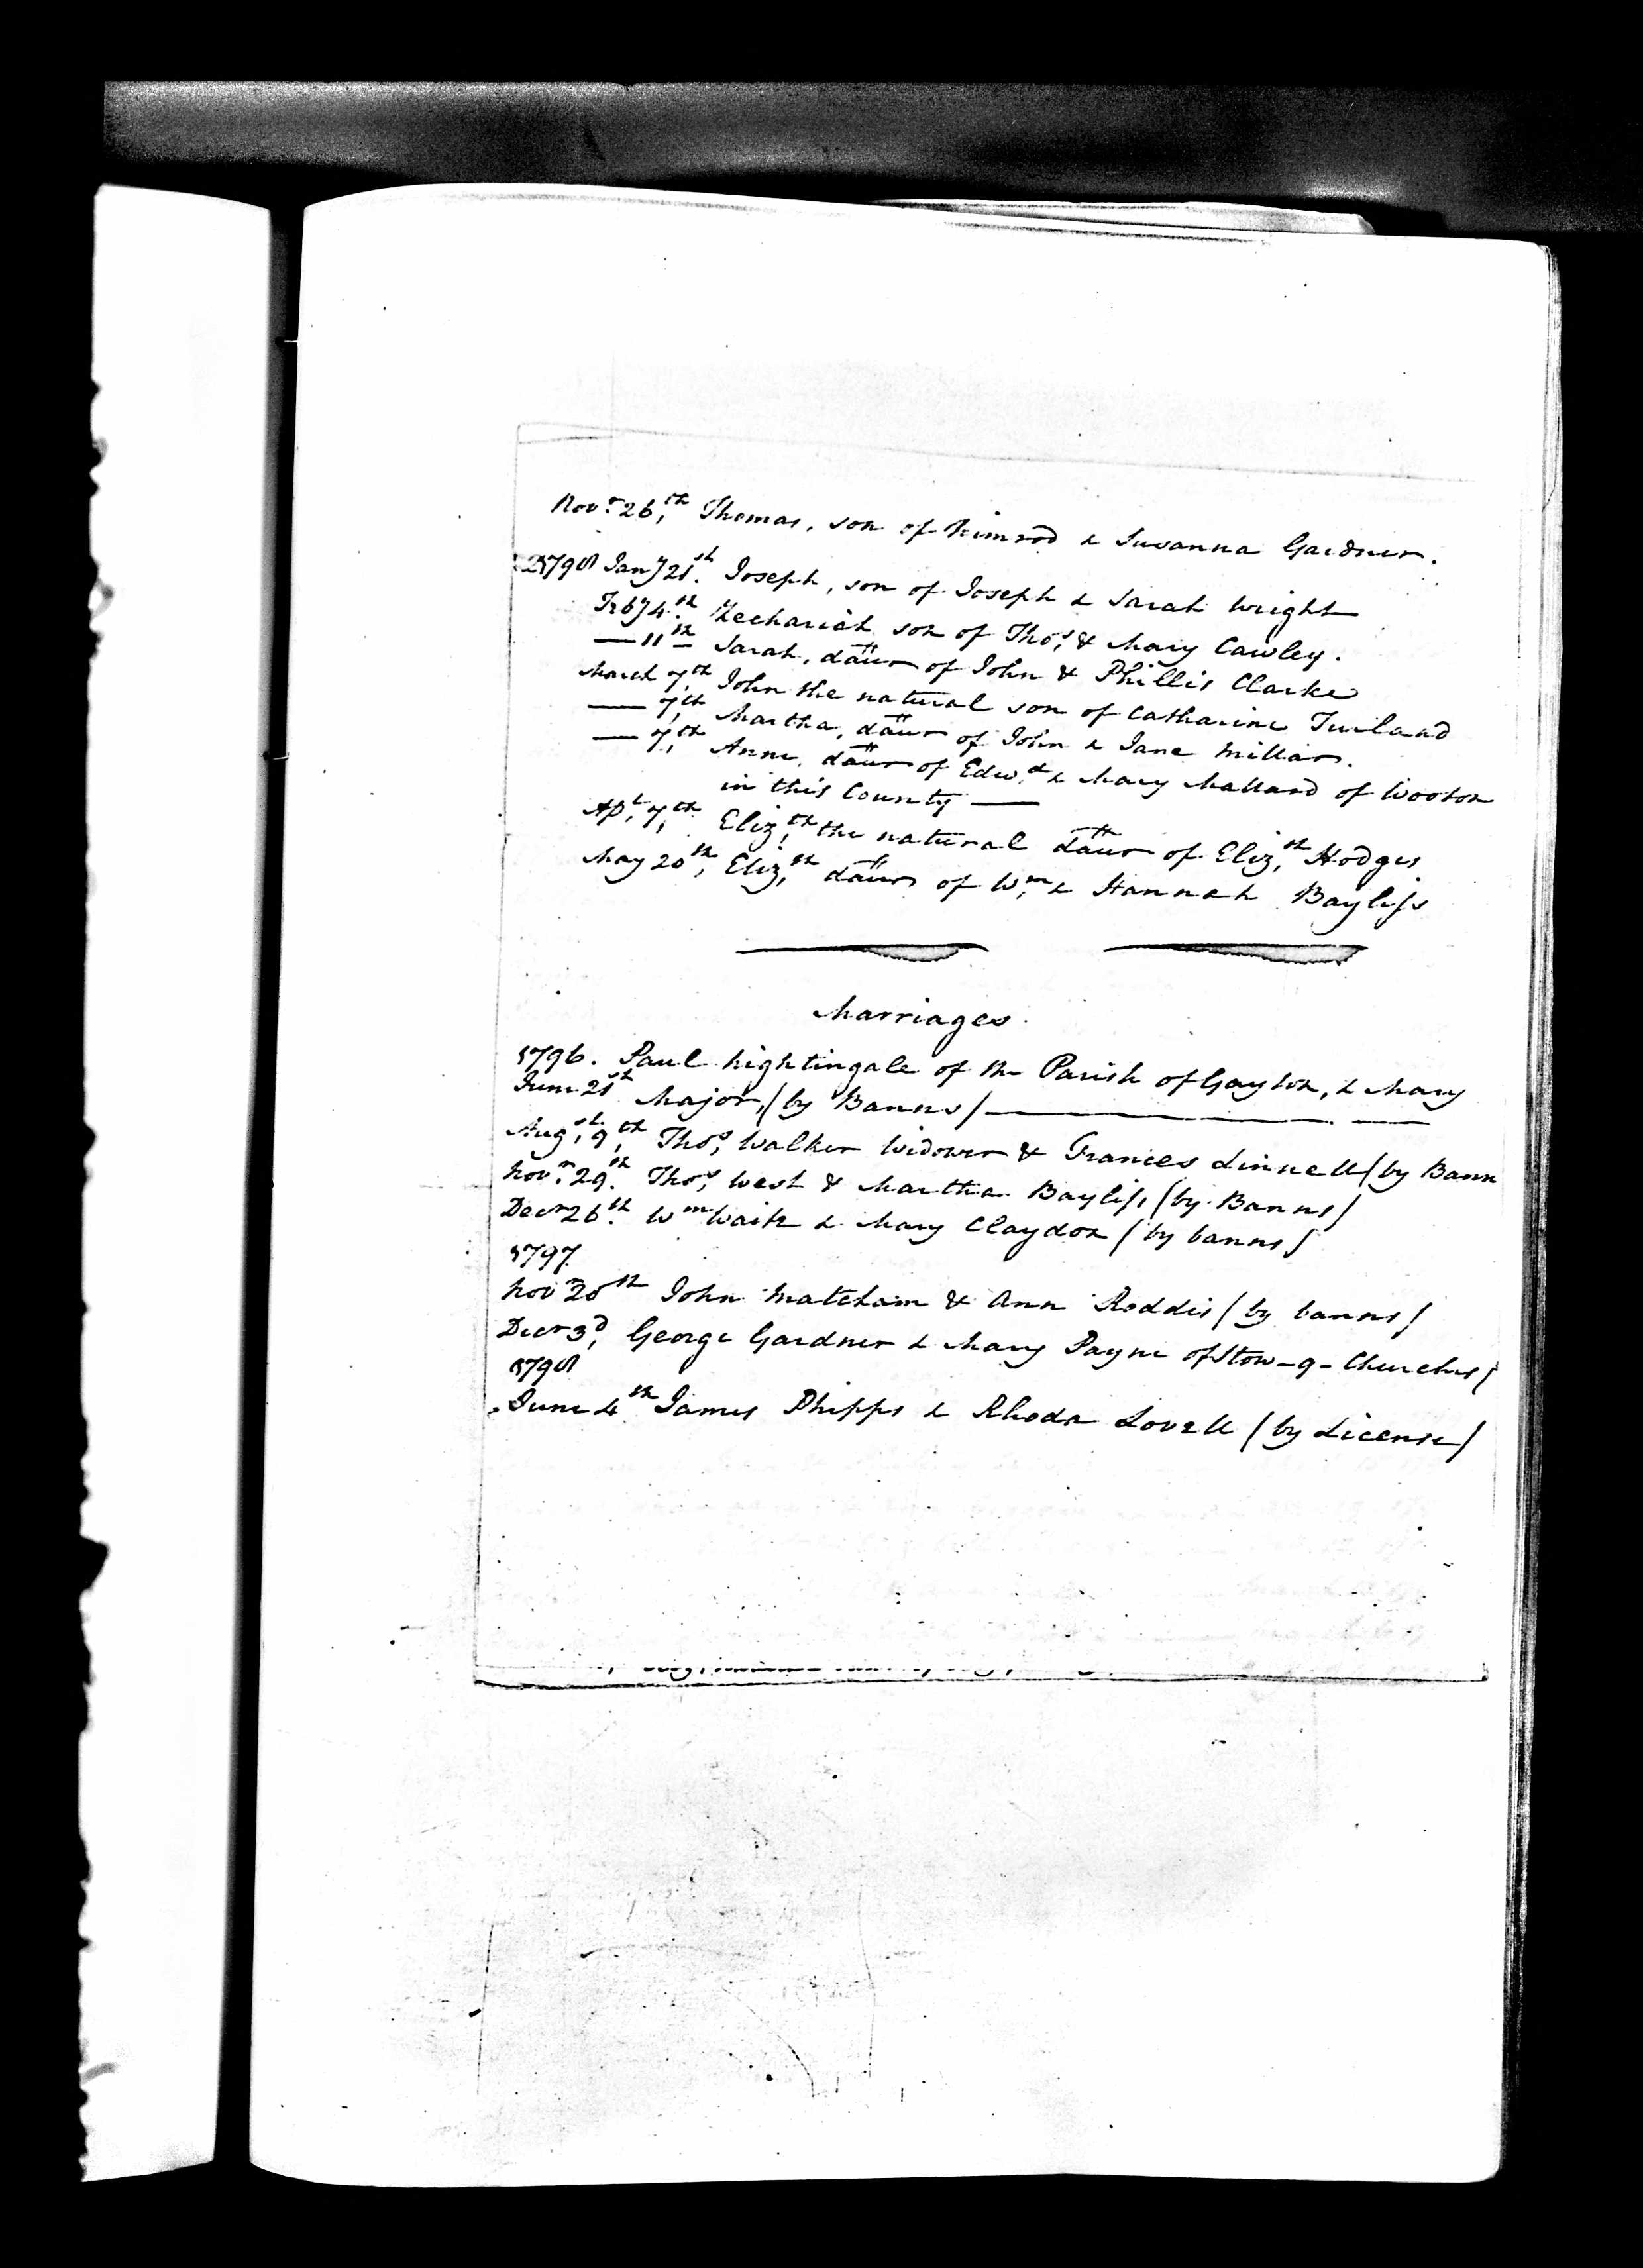 Novr. 26,th Thomas, son of Nimrod & Susanna Gardner.
1798 Jany 21st. Joseph, son of Joseph & Sarah Wright
Feby 4.th Zechariah son of Thos, & Mary Cawley.
— 11th Sarah, daur of John & Phillis Clarke
March 7,th John the natural son of Catharine Turland
— 7,th Martha, daur of John & Jane Millar.
— 7,th Anne, daur of Edw,d & Mary Mallard of Wooton
in this County —
Apl, 7,th Eliz,th the natural daur of Eliz,th Hodges
May 20th, Eliz,th daur of Wm, & Hannah Bayliss
Marriages
1796. Paul Nightingale of the Parish of Gayton, & Mary
June 21st Major, (by Banns) —
Augst, 9,th Thos, Walker Widower & Frances Linnell (by Bann
Novr. 29.th Thos, West & Martha Bayliss (by Banns)
Decr 26.th Wm Waite & Mary Claydon (by banns)
1797.
Novr 20th John Matcham & Ann Roddis (by banns)
Decr 3d, George Gardner & Mary Payne of Stow-9-Churches)
1798
June 4th James Phipps & Rhoda Lovell (by License)